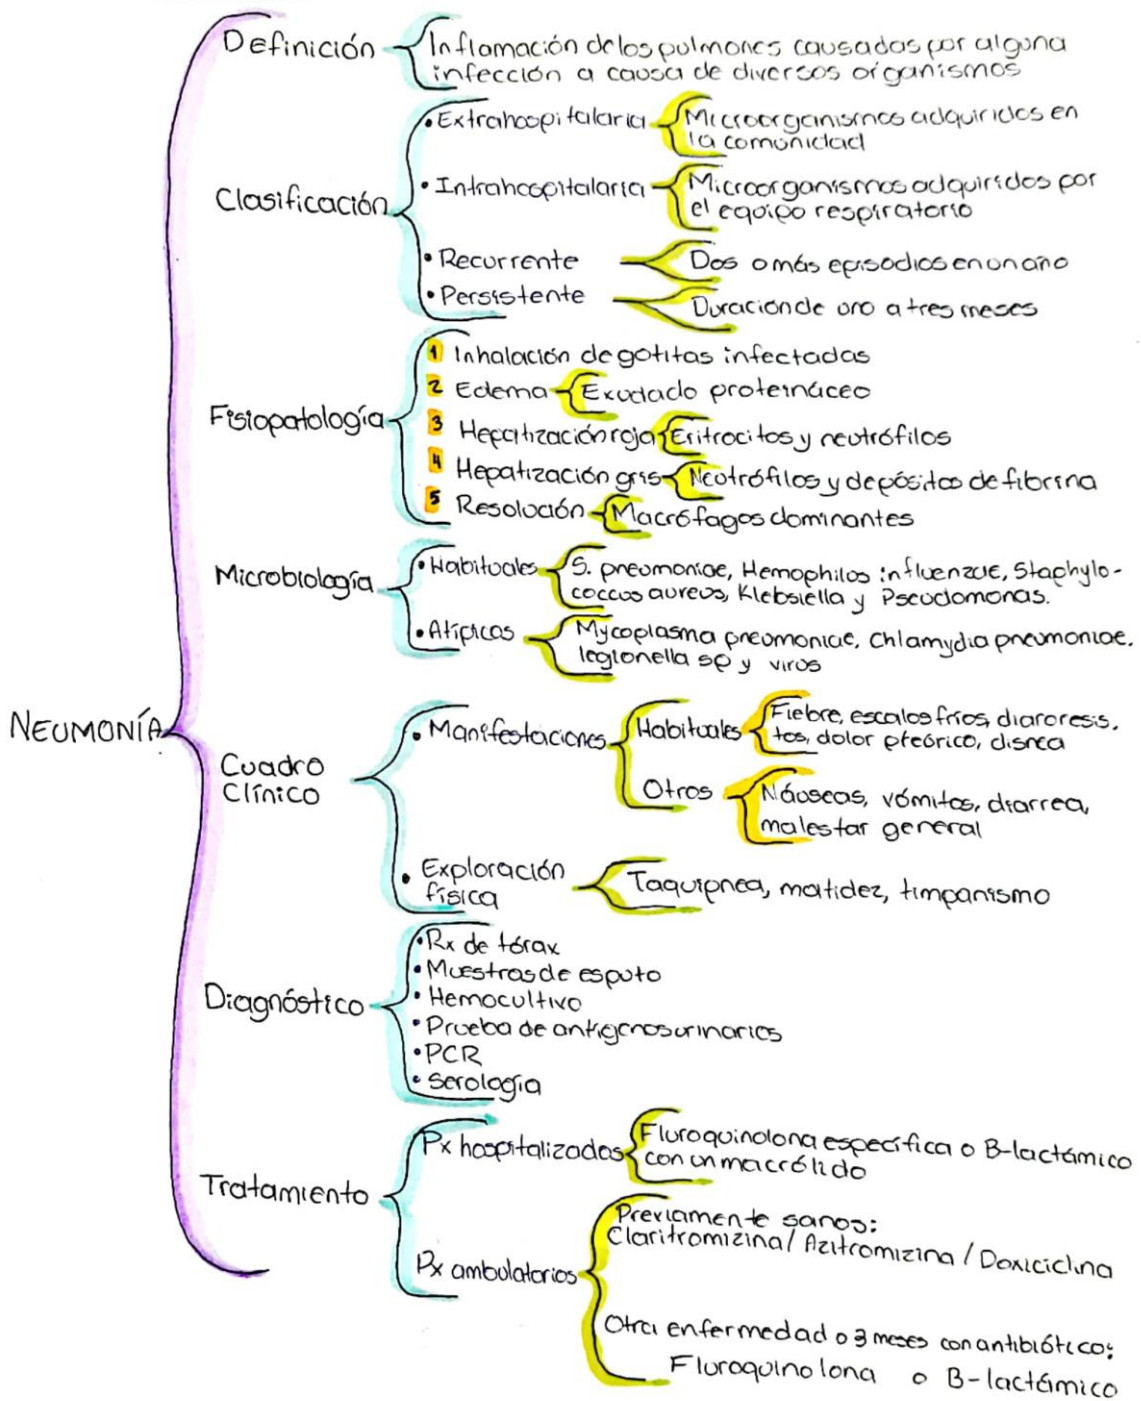 NEUMONÍA
Definición
Inflamación de los pulmones causadas por alguna
infección a causa de diversos organismos
Clasificación
• Extrahospitalaria
Microorganismos adquiridos en
la comunidad
• Intrahospitalaria
Microorganismos adquiridos por
el equipo respiratorio
• Recurrente
Dos o más episodios en un año
• Persistente
Duración de uno a tres meses
Fisiopatología
1 Inhalación de gotitas infectadas
2 Edema
Exudado proteináceo
3 Hepatización roja
Eritrocitos y neutrófilos
4 Hepatización gris
Neutrófilos y depósitos de fibrina
5 Resolución
Macrófagos dominantes
Microbiología
• Habituales
S. pneumoniae, Hemophilos influenzae, Staphylo-
coccus aureus, Klebsiella y Pseudomonas.
• Atípicos
Mycoplasma pneumoniae, Chlamydia pneumoniae,
legionella sp y virus
Cuadro
Clínico
• Manifestaciones
Habituales
Fiebre, escalosfríos, diaroresis,
tos, dolor pleórico, disnea
Otros
Náuseas, vómitos, diarrea,
malestar general
• Exploración
física
Taquipnea, matidez, timpanismo
Diagnóstico
• Rx de tórax
• Muestras de esputo
• Hemocultivo
• Prueba de antígenos urinarios
• PCR
• Serología
Tratamiento
Px hospitalizados
Fluroquinolona específica o B-lactámico
con un macrólido
Px ambulatorios
Previamente sanos:
Claritromizina / Azitromizina / Doxiciclina
Otra enfermedad o 3 meses con antibiótico:
Fluroquinolona o B-lactámico